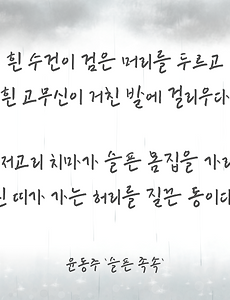 흰 수건이 검은 머리를 두르고
흰 고무신이 거친 발에 걸리우다
저고리 치마가 슬픈 몸집을 가리
띠가 가는 허리를 질끈 동이다
윤동주 '슬픈 족속'